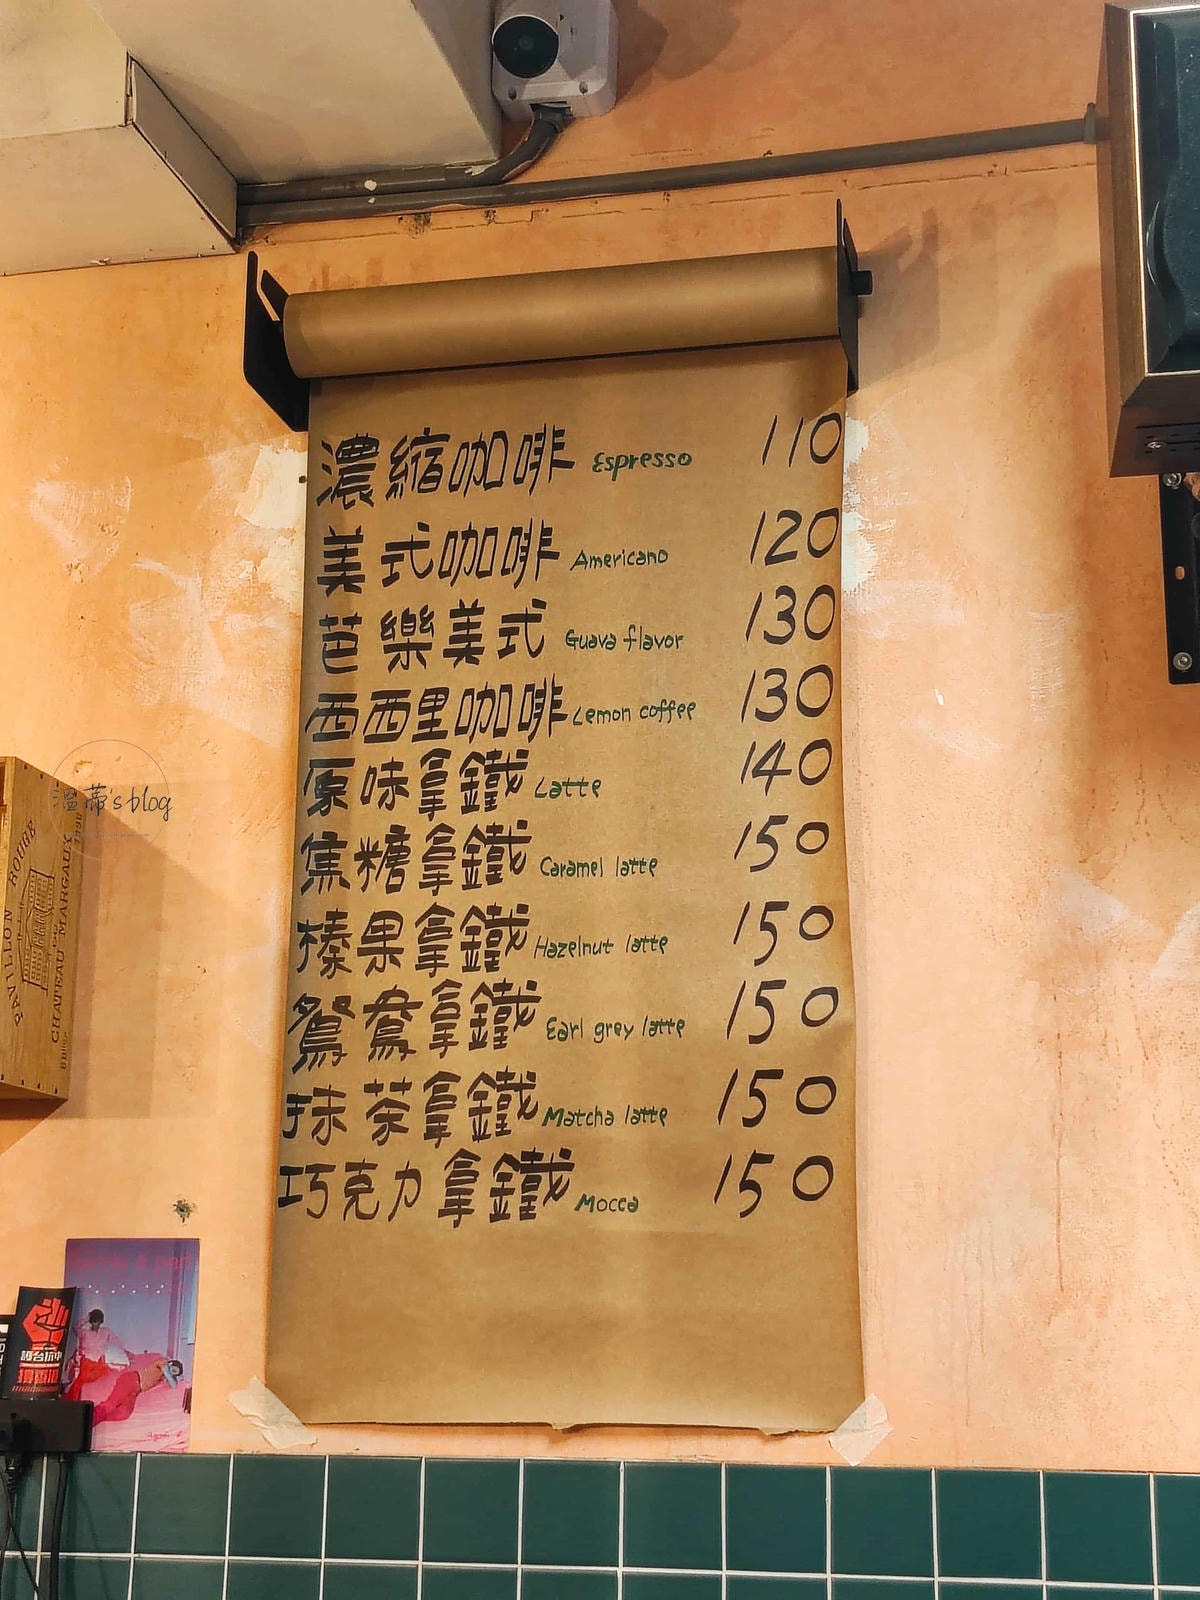 濃縮咖啡 Espresso 110
美式咖啡 Americano 120
芭樂美式 Guava flavor 130
西西里咖啡 Lemon coffee 130
原味拿鐵 Latte 140
焦糖拿鐵 Caramel latte 150
榛果拿鐵 Hazelnut latte 150
鴛鴦拿鐵 Earl grey latte 150
抹茶拿鐵 Matcha latte 150
巧克力拿鐵 Mocca 150
溫蒂's blog
PAVILLON ROUGE
CHATEAU MARGAUX
撐香港